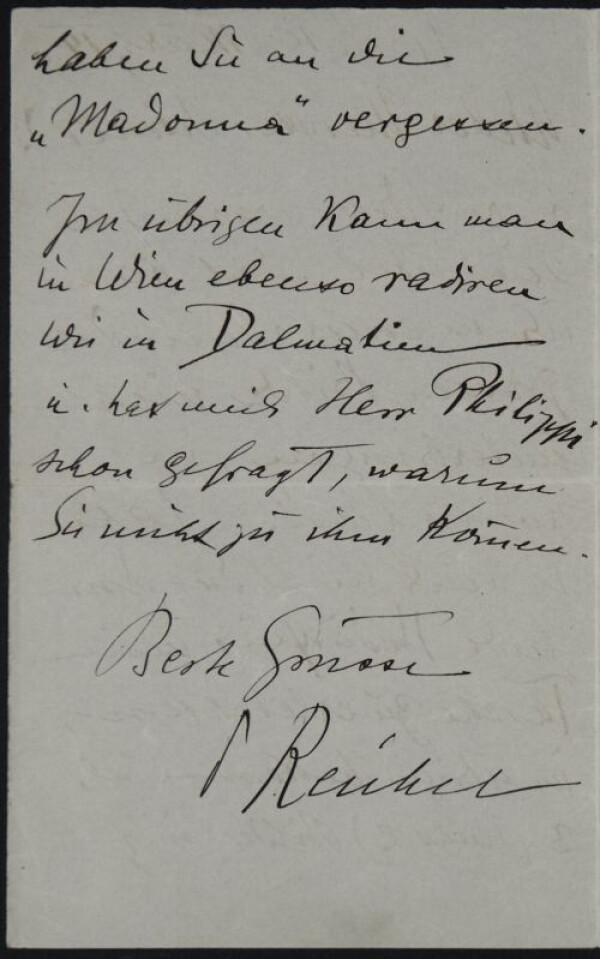 haben Sie an die
„Madonna“ vergessen.
Im übrigen kann man
in Wien ebenso radiren
wie in Dalmatien
u. hat mich Herr Philippi
schon gefragt, warum
Sie nicht zu ihm komen.
Beste Grüsse
Reichel